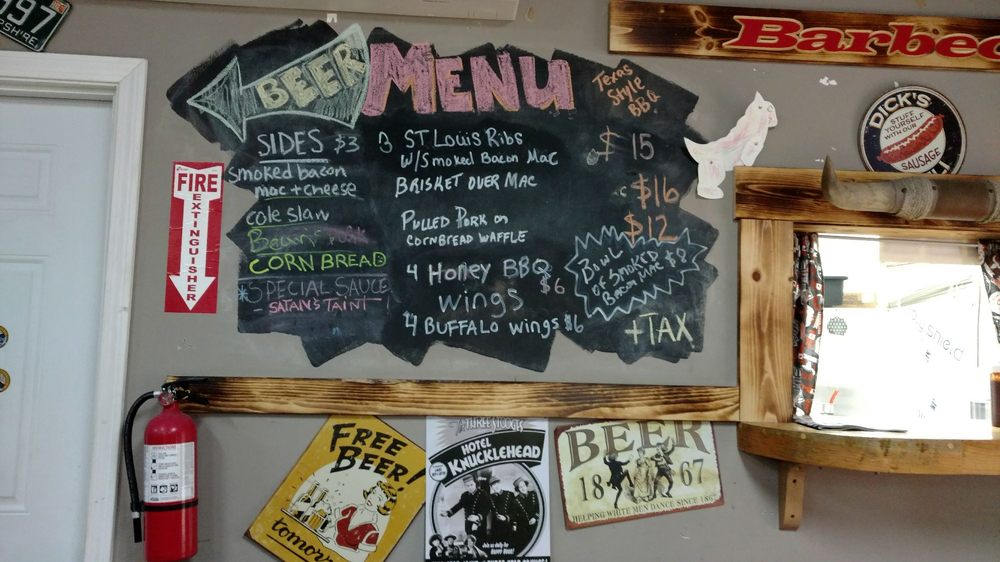 997
PSHIRE
BEER
MENU
Texas
Style
BBQ
SIDES $3
smoked bacon
mac + cheese
cole slaw
CORN BREAD
*SPECIAL SAUCE
- SATAN'S TAINT
3 ST LOUIS RIBS
W/SMOKED BACON MAC
$ 15
BRISKET OVER MAC
$16
PULLED PORK ON
CORNBREAD WAFFLE
$12
4 HONEY BBQ
WINGS
$6
4 BUFFALO WINGS $6
BOWL
OF SMOKED
BACON MAC $8
+TAX
FIRE
EXTINGUISHER
Barbec
DICK'S
STUFF
YOURSELF
WITH OUR
SAUSAGE
FREE
BEER!
tomorr
The THREE STOOGES
HOTEL
KNUCKLEHEAD
BEER
1867
HELPING WHITE MEN DANCE SINCE 1867